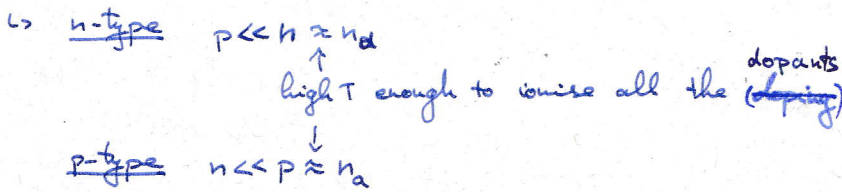 ↳ n-type p<<n ≈ n_d
↑
dopants
high T enough to ionise all the (doping)
↓
p-type n<<p ≈ n_a